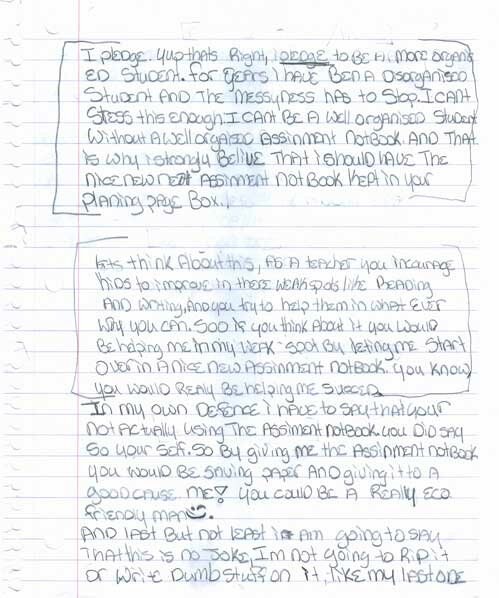 I pledge. Yup thats Right, i pledge to BE A more organis
ED Student. for years I have BEN A DisorganisED
Student AND The Messyness has to Stop. I CANT
Stess this enough. I CANt BE A well organisED Student
Without A well orgaised Assinment NotBook. AND That
is why i strongly Belive That i should HAVE The
Nice new Assinment NotBook Kept in your
planing page Box.
lets think About this, As A teacher you incourage
kids to improve in there weak spots like Reading
AND Writing, And you try to help them in what Ever
Way you can. Soo is you think About it you Would
Be helping me in my Weak-spot By leting me Start
Over in A Nice new Assinment NotBook. You Know
you would Realy Be helping me Succed.
In my own Defence i have to say that your
not actually using The Assiment notBook. you Did say
So your Self. So By giving me the Assinment notBook
you would BE saving paper AND giving it to A
good cause. ME! you could BE A Really Eco
friendly man.
AND last But not least i Am going to say
That this is no Joke, I'm not going to Rip it
or Write Dumb stuff on it, like my last one